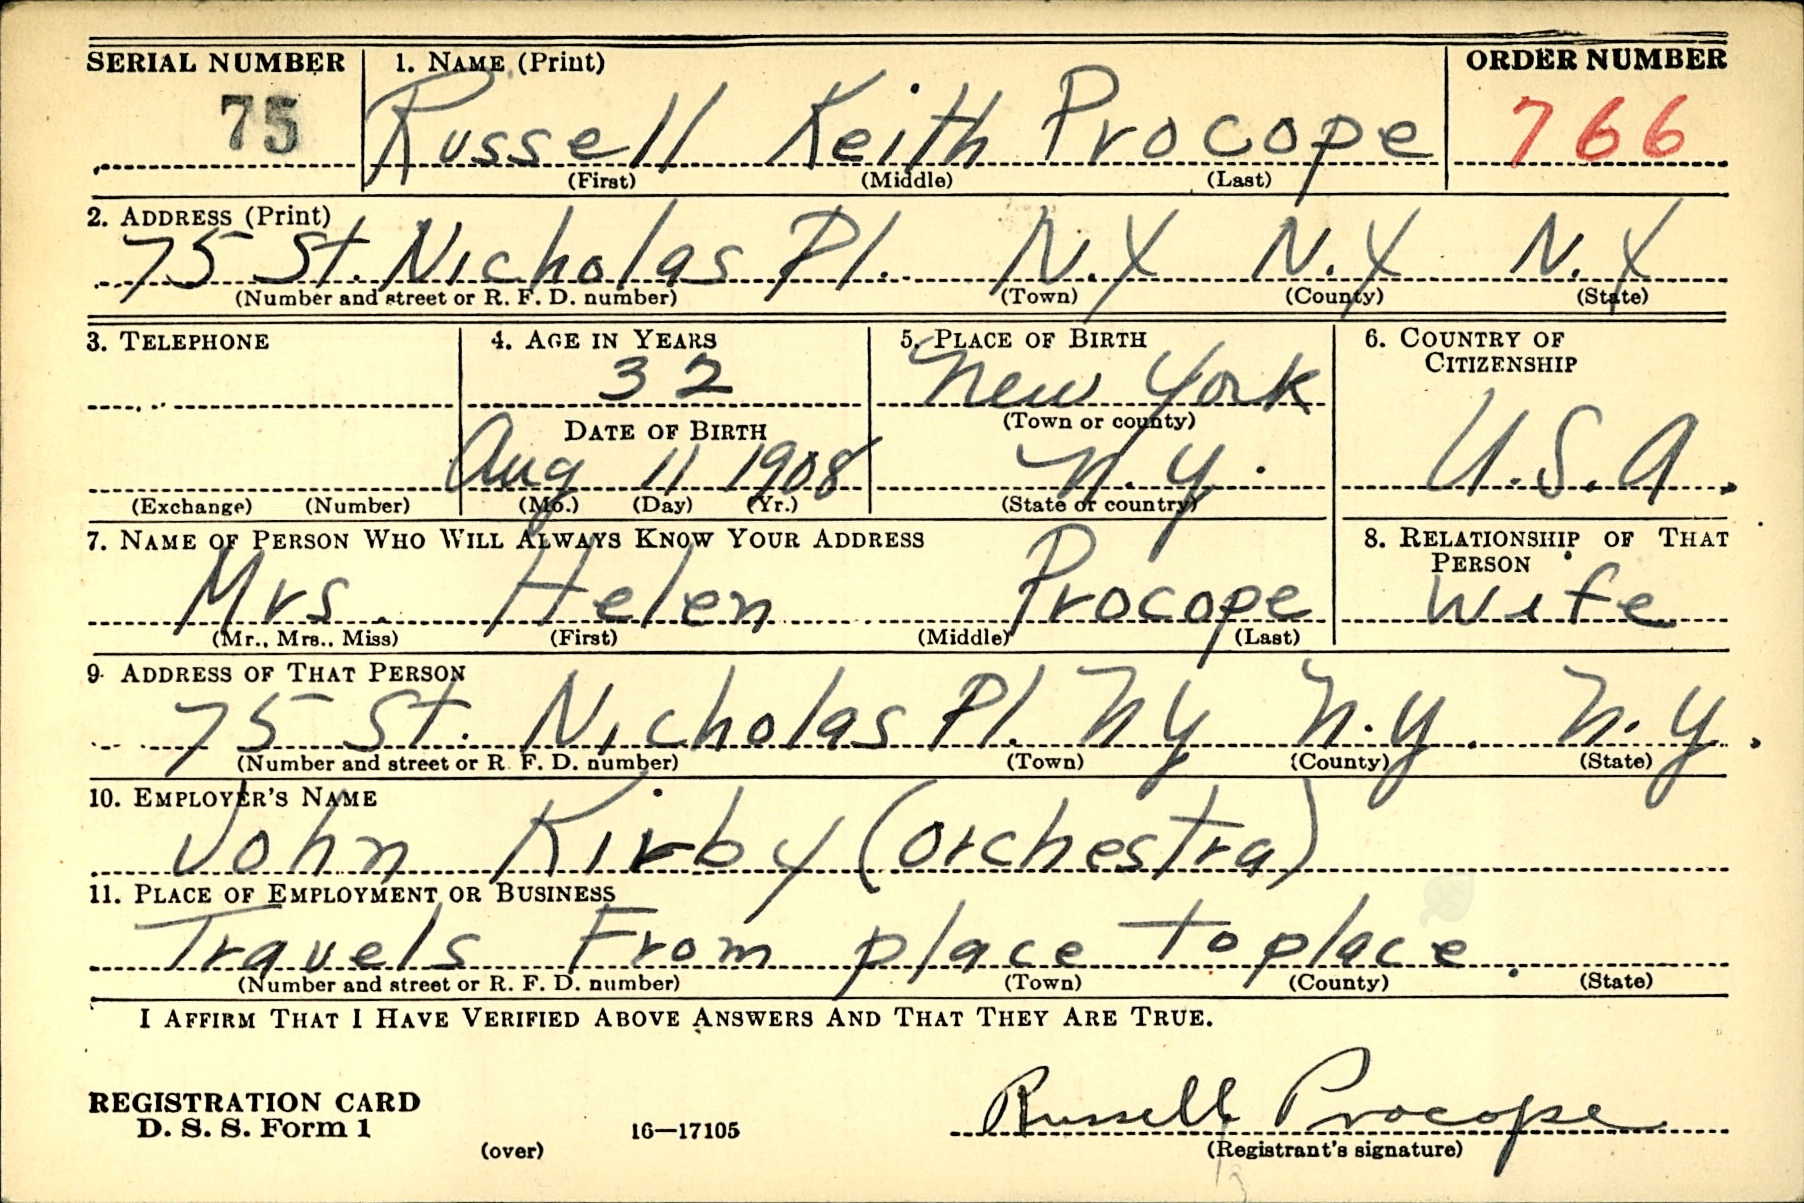 SERIAL NUMBER 1. NAME (Print) ORDER NUMBER
75 Russell Keith Procope 766
(First) (Middle) (Last)
2. ADDRESS (Print)
75 St. Nicholas Pl. N.Y N.Y N.Y
(Number and street or R. F. D. number) (Town) (County) (State)
3. TELEPHONE 4. AGE IN YEARS 5. PLACE OF BIRTH 6. COUNTRY OF CITIZENSHIP
32 New York
DATE OF BIRTH (Town or county)
Aug 11 1908 N.Y. U.S.A.
(Exchange) (Number) (Mo.) (Day) (Yr.) (State or country)
7. NAME OF PERSON WHO WILL ALWAYS KNOW YOUR ADDRESS 8. RELATIONSHIP OF THAT PERSON
Mrs. Helen Procope Wife
(Mr., Mrs., Miss) (First) (Middle) (Last)
9. ADDRESS OF THAT PERSON
75 St. Nicholas Pl. NY N.Y. N.Y.
(Number and street or R. F. D. number) (Town) (County) (State)
10. EMPLOYER'S NAME
John Kirby (Orchestra)
11. PLACE OF EMPLOYMENT OR BUSINESS
Travels From place to place.
(Number and street or R. F. D. number) (Town) (County) (State)
I AFFIRM THAT I HAVE VERIFIED ABOVE ANSWERS AND THAT THEY ARE TRUE.
REGISTRATION CARD
D. S. S. Form 1 (over) 16—17105 Russell Procope
(Registrant's signature)